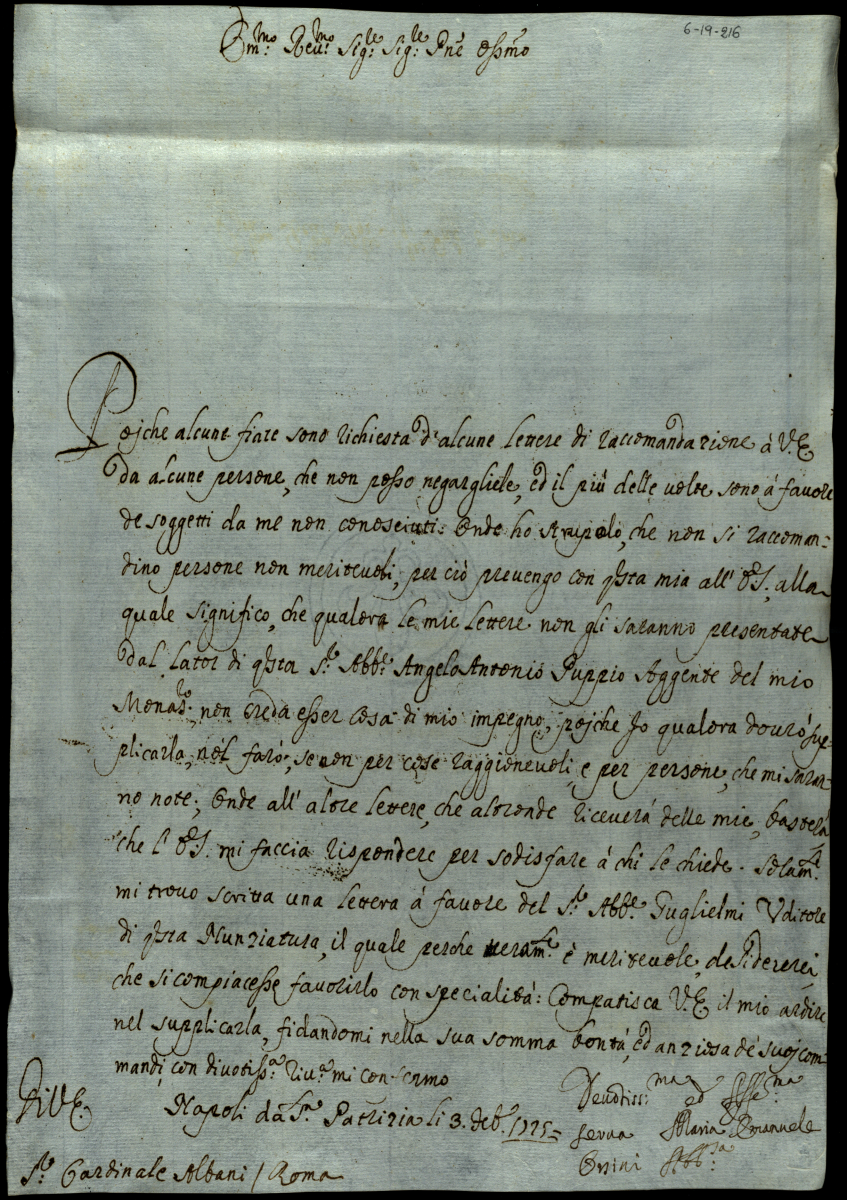 6-19-216
Em:mo Rev:mo Sig:re Sig:re Pne Ossmo
Pojche alcune fiate sono richiesta d'alcune lettere di raccomandazione à V.E.
da alcune persone, che non posso negargliele, ed il più delle volte sono à favore
de soggetti da me non conosciuti: Onde ho scrupolo, che non si raccoman=
dino persone non meritevoli; per ciò prevengo con qsta mia all' E.S., alla
quale significo, che qualora le mie lettere non gli saranno presentate
dal lator di qsta S.r Abb.e Angelo Antonio Puppio Aggente del mio
Monas.ro, non creda esser cosa di mio impegno, pojche Jo qualora dovrò sup=
plicarla, nol farò, se non per cose raggionevoli, e per persone, che mi saran=
no note; Onde all' altre lettere, che altronde riceverà delle mie, basterà
che l' E.S. mi faccia rispondere per sodisfare à chi le chiede. Solam.te
mi trovo scritta una lettera à favore del S.r Abb.e Guglielmi Uditore
di qsta Nunziatura, il quale perche veram.te è meritevole, desidererei
che si compiacesse favorirlo con specialità: Compatisca V.E. il mio ardire
nel supplicarla, fidandomi nella sua somma bontà, ed anziosa de' suoj com=
mandi, con divotiss.a riv.a mi confermo
Di V.E.
Napoli da S.a Patrizia li 3. Feb.o 1725=
Devotiss:ma ed
serva Maria Emanuele
Orsini Abb:sa
S.r Cardinale Albani / Roma